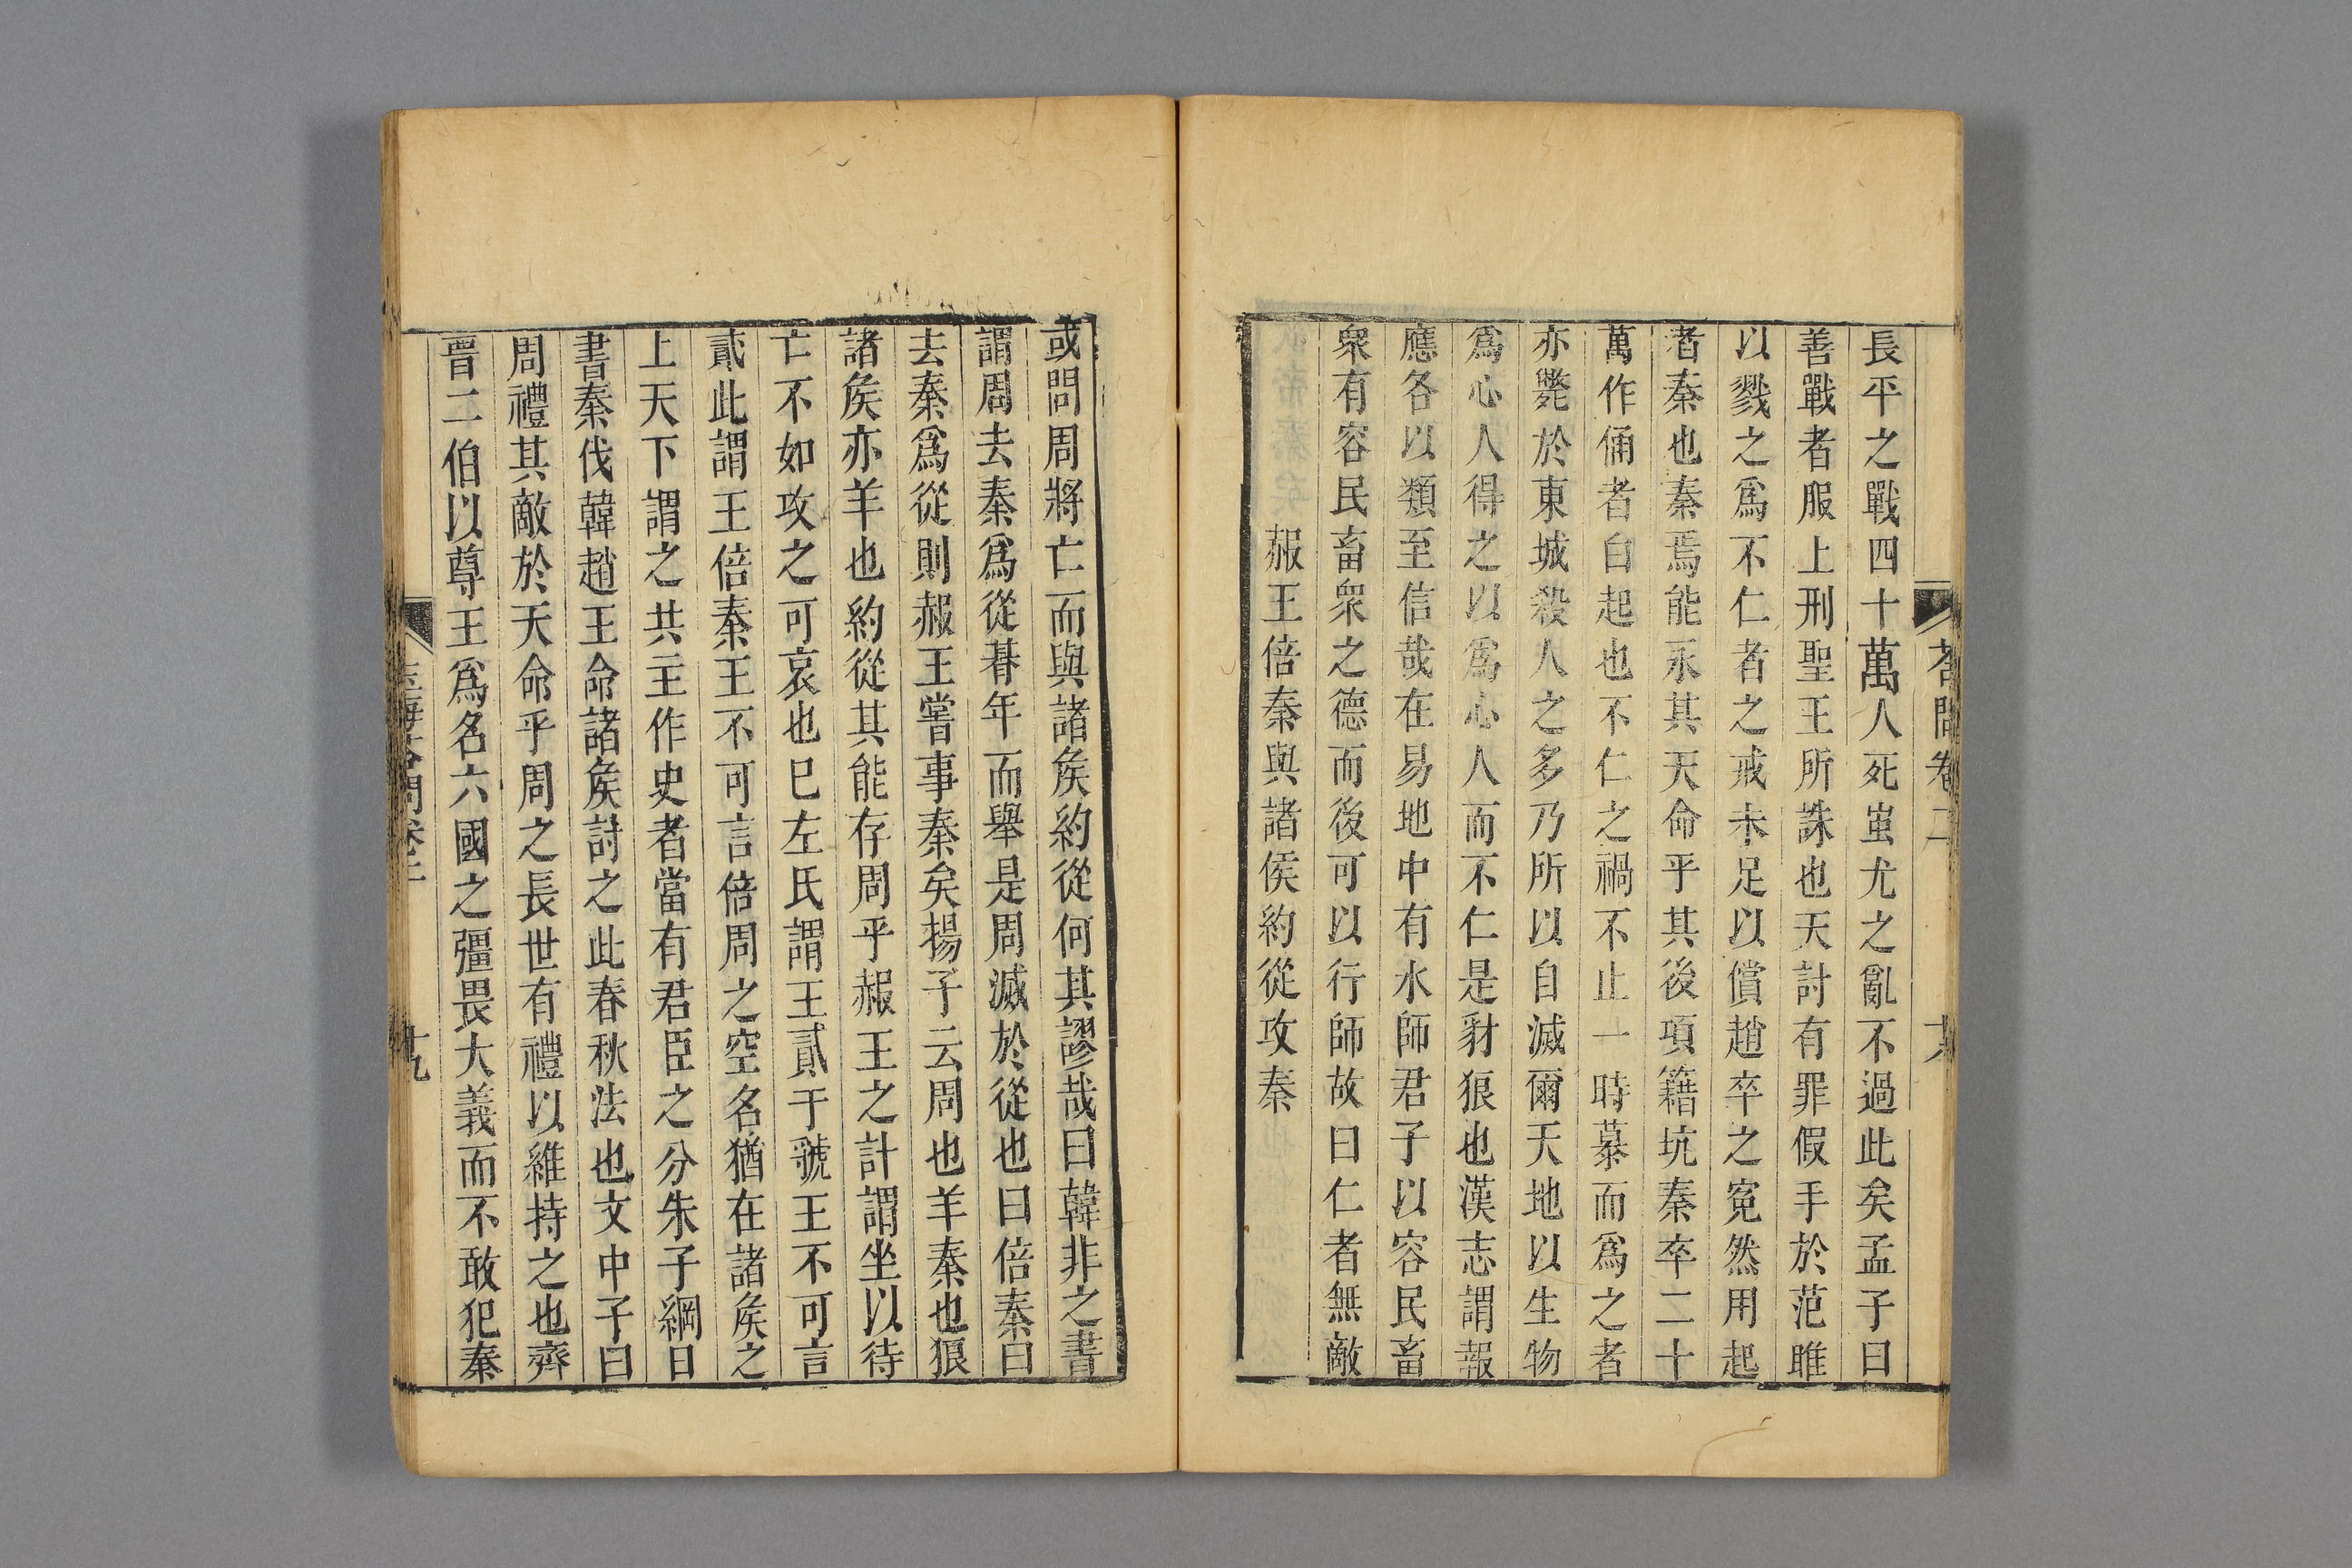 荅問卷二
長平之戰四十萬人死蚩尤之亂不過此矣孟子曰
善戰者服上刑聖王所誅也天討有罪假手於范雎
以戮之爲不仁者之戒未足以償趙卒之寃然用起
者秦也秦焉能永其天命乎其後項籍坑秦卒二十
萬作俑者白起也不仁之禍不止一時慕而爲之者
亦斃於東城殺人之多乃所以自滅爾天地以生物
爲心人得之以爲心人而不仁是豺狼也漢志謂報
應各以類至信哉在易地中有水師君子以容民畜
衆有容民畜衆之德而後可以行師故曰仁者無敵
赧王倍秦與諸侯約從攻秦
或問周將亡而與諸矦約從何其謬哉曰韓非之書
謂周去秦爲從朞年而舉是周滅於從也曰倍秦曰
去秦爲從則赧王嘗事秦矣揚子云周也羊秦也狼
諸矦亦羊也約從其能存周乎赧王之計謂坐以待
亡不如攻之可哀也巳左氏謂王貳于虢王不可言
貳此謂王倍秦王不可言倍周之空名猶在諸矦之
上天下謂之共主作史者當有君臣之分朱子綱目
書秦伐韓趙王命諸矦討之此春秋法也文中子曰
周禮其敵於天命乎周之長世有禮以維持之也齊
晉二伯以尊王爲名六國之彊畏大義而不敢犯秦